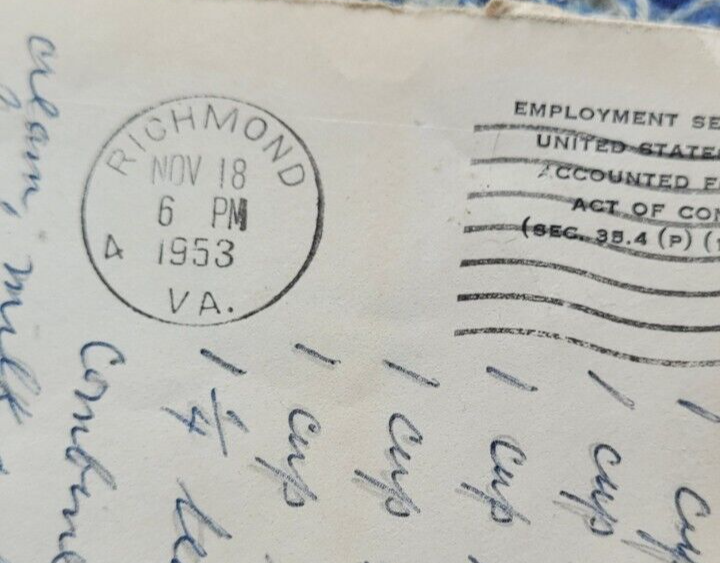 RICHMOND
NOV 18
6 PM
4 1953
VA.
EMPLOYMENT SE
UNITED STATES
ACCOUNTED F
ACT OF CON
(SEC. 35.4 (P) (1
1 cup
1 cup
1 cup
1 cup
1 cup
1 1/4 te
Combine
cream, milk